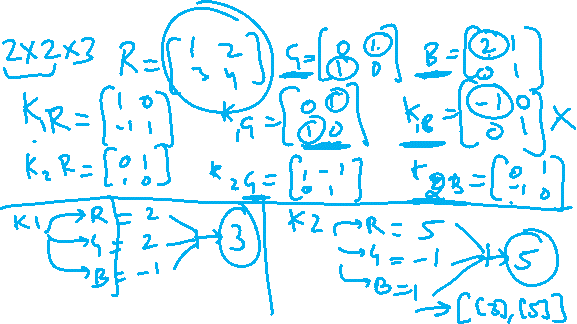 2×2×3 R = [1 2 3 4] G = [0 1 1 0] B = [2 1 0 1]
K1R = [1 0 -1 1] K1G = [0 1 1 0] K1B = [-1 0 0 1] X
K2R = [0 1 1 0] K2G = [1 -1 0 1] B = [0 1 -1 0]
K1 → R = 2
→ G = 2 + → 3
→ B = -1
K2 → R = 5
→ G = -1 + → 5
→ B = 1
→ [[3], [5]]